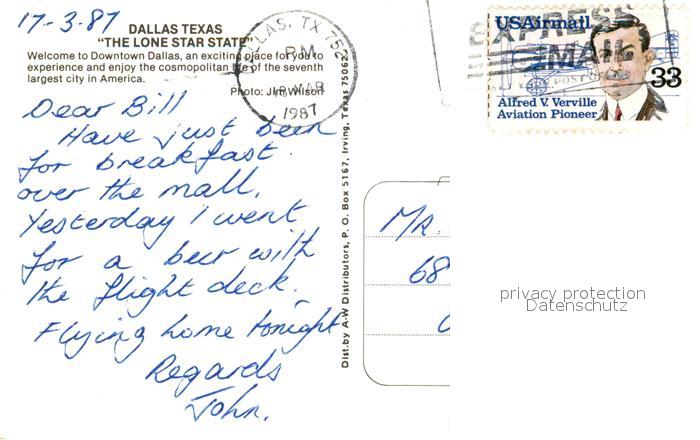 17-3-87
DALLAS TEXAS
"THE LONE STAR STATE"
Welcome to Downtown Dallas, an exciting place for you to
experience and enjoy the cosmopolitan life of the seventh
largest city in America.
Photo: Jim Wilson
DALLAS, TX 752
P.M.
MAR
1987
USAirmail
EXPRESS
MAIL
33
Alfred V. Verville
Aviation Pioneer
Dear Bill
Have just been
for breakfast
over the mall.
Yesterday I went
for a beer with
the flight deck.
Flying home tonight
Regards
John.
Dist. by A-W Distributors, P. O. Box 5167, Irving, Texas 75062
MR.
68
privacy protection
Datenschutz